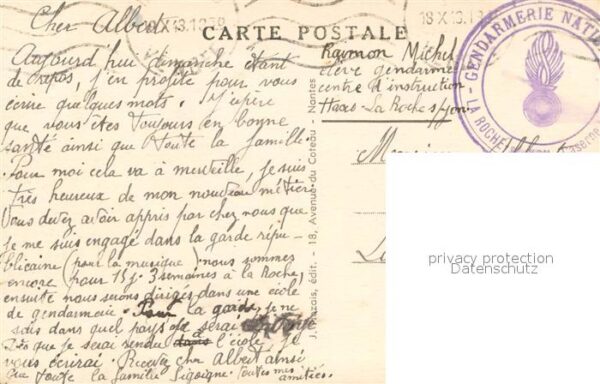 Cher Albert
X 13.19
18 X 13.1
CARTE POSTALE
Aujourd'hui dimanche étant
de repos, j'en profite pour vous
écrire quelques mots. J'espère
que vous êtes toujours en bonne
santé ainsi que toute la famille.
Pour moi cela va à merveille, je suis
très heureux de mon nouveau métier.
Vous devez avoir appris par chez nous que
je me suis engagé dans la garde répu-
blicaine (pour la musique) nous sommes
encore pour 15j - 3 semaines à la Roche,
ensuite nous serons dirigés dans une école
de gendarmerie. Pour la garde, je ne
sais dans quel pays je serai
Dès que je serai rendu à l'école, je
vous écrirai. Recevez cher Albert ainsi
que toute la famille Sigoigne toutes mes
amitiés.
J. édit. - 18, Avenue du Coteau - Nantes
Raimon Michel
élève gendarme
centre d'instruction
La Roche s/yon
GENDARMERIE NATI
A ROCHE
Caserne
Monsieur
privacy protection
Datenschutz